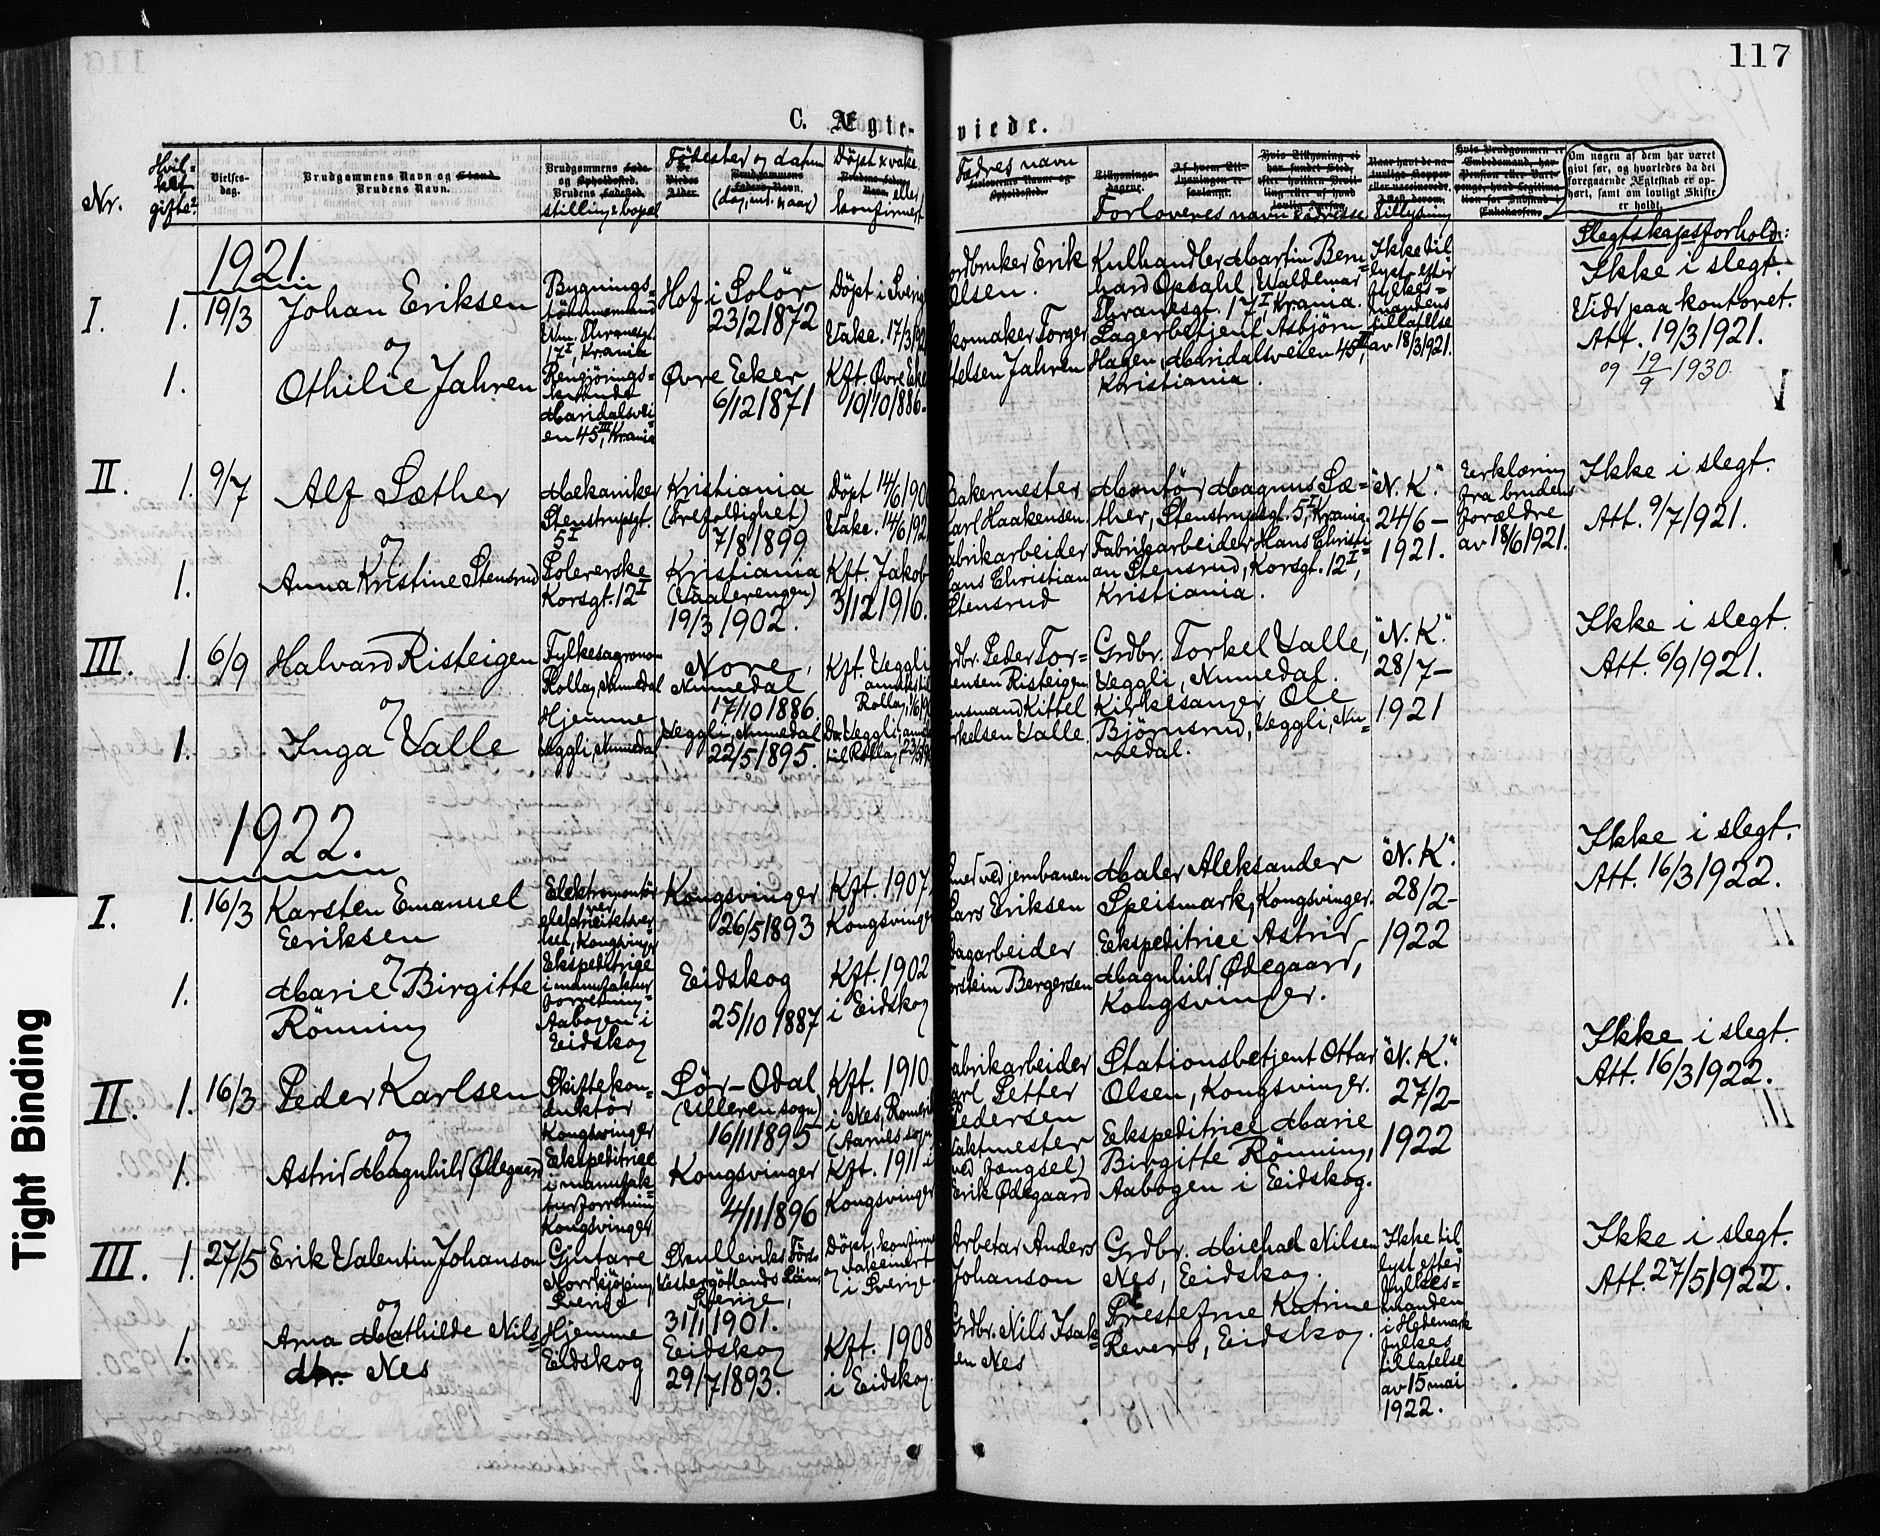 117
C. Ægte-
viede.
Nr.
Hvil=
ket
gifte?
Vielses-
dag.
Brudgommens Navn og Stand.
Brudens Navn.
Brudgommens Føde-
og Opholdssted.
Brudens Fødested.
stilling & bopæl
Fødester og datum
De
Viedes
Alder.
Brudgommens
Faders Navn.
(dag, md. & aar)
Døpt & vake.
Brudens Faders
Navn. eller
konfirmert
Fædres navn
Forlovernes Navne og
Opholdssted.
Tillysnings-
dagene.
Af hvem Til-
lysningen er
forlangt.
Forloveres navn & adresse
Tillysning
Om nogen af dem har været
gift før, og hvorledes da det
foregaaende Ægteskab er op-
hørt, samt om lovligt Skifte
er holdt.
Slegtskapsforhold:
1921.
I.
1. 19/3
Johan Eriksen
Bygnings=
tømmermand
Wm. Thranesgt.
17 I Krania
Hof i Solør
23/2 1872
Døpt i Sverig
Vake. 17/3 192
ordbruker Erik
Olsen.
Kulhandler Martin Bern=
hard Opsahl, Waldemar
Thranesgt. 17 I, Krania.
Ikke til
lyst efter
fylkes=
mandens
tillatelse
av 18/3 1921.
Ikke i slegt.
Vidr paa kontoret.
Att. 19/3 1921.
og 19/9 1930
og
1.
Othilie Jahren
Rengjørings=
kvinde
Maridalsvei
en 45 III, Krania
Øvre Eker
6/12 1871
Kft. Øvre Eke
10/10 1886.
komaker Torger
telsen Jahren
Lagerbetjent Asbjørn
Hagen, Maridalsveien 45 III,
Kristiania.
V
II.
1. 9/7
Alf Sæther
Mekaniker
Stenstrupsgt.
5 I
Kristiania
(Trefoldighet)
7/8 1899
Døpt 14/6 190
Vake. 14/6 192
Bakermester
Carl Haakensen.
Montør Magnus Sæ=
ther, Stenstrupsgt. 5 I, Krania.
"N. K."
24/6 –
1921.
Erklæring
fra brudens
forældre
av 18/6 1921.
Ikke i slegt.
Att. 9/7 1921.
og
1.
Anna Kristine Stensrud
Polererske
Korsgt. 12 I
Kristiania
(Vaalerengen)
19/3 1902.
Kft. Jakob
3/12 1916.
Fabrikarbeider
Hans Christian
Stensrud
Fabrikarbeider Hans Christi=
an Stensrud, Korsgt. 12 I,
Kristiania.
III.
1. 6/9
Halvard Risteigen
Fylkesagronom
Rollag, Numedal
Nore,
Numedal
17/10 1886.
Kft. Veggli
anneks til
Rollag
Grdbr. Peder Tor=
stensen Risteigen
Grdbr. Torkel Valle,
Veggli, Numedal.
"N. K."
28/7 –
1921
Ikke i slegt.
Att. 6/9 1921.
og
1.
Inga Valle
Hjemme
Veggli, Numedal
Veggli, Numedal
22/5 1895.
Lensmand Kittel
Torkelsen Valle.
Kirkesanger Ole
Bjørnsrud, Veggli, Nu=
medal.
1922.
I.
1. 16/3
Karsten Emanuel
Eriksen
Elektromontør
ved
elektricitetsver=
ket, Kongsvinger
Kongsvinger
26/5 1893
Kft. 1907
Kongsvinger
Smed ved jernbanen
Lars Eriksen
Maler Aleksander
Speismark, Kongsvinger.
"N. K."
28/2 –
1922
Ikke i slegt.
Att. 16/3 1922.
og
1.
Marie Birgitte
Rönning
Ekspeditrice
i manufaktur
forretning=
Aabogen i
Eidskog
Eidskog
25/10 1887
Kft. 1902
i Eidskog
Dagarbeider
Torstein Bergersen
Ekspeditrice Astrid
Magnhild Ødegaard,
Kongsvinger.
II.
1. 16/3
Peder Karlsen
Skiftekon=
duktør
Kongsvinger
Sör-Odal
(Ulleren sogn)
16/11 1895
Kft. 1910
i Nes, Romerik
(Aarnes sogn
Fabrikarbeider
Carl Petter
Pedersen
Stationsbetjent Ottar
Olsen, Kongsvinger.
"N. K."
27/2 –
1922
Ikke i slegt.
Att. 16/3 1922.
og
1.
Astrid Magnhild Ødegaard
Ekspeditrice
i manufak=
turforretning
Kongsvinger
Kongsvinger
4/11 1896
Kft. 1911 i
Kongsvinger
Vaktmester
(ved fængsel)
Erik Ødegaard
Ekspeditrice Marie
Birgitte Rönning,
Aabogen i Eidskog.
III.
1. 27/5
Erik Valentin Johanson
Gjutare
Norrköping,
Sverige
Skulleviks Förs.
Vestergötlands Län,
Sverige,
31/1 1901.
Döpt, konfirm
og vaksinert
i Sverige
Arbetar Anders
Johanson
Grdbr. Michael Nilsen
Nes, Eidskog.
Ikke til=
lyst efter
fylkes=
manden
i Hedemark
fylkes
tillatelse
av 15 mai
1922.
Ikke i slegt.
Att. 27/5 1922.
og
1.
Arna Mathilde Nils=
dtr. Nes
Hjemme
Eidskog
Eidskog
29/7 1893.
Kft. 1908
i Eidskog.
Grdbr. Nils Isak=
sen Nes
Presteftue Katrine
Reverb, Eidskog.
Tight Binding